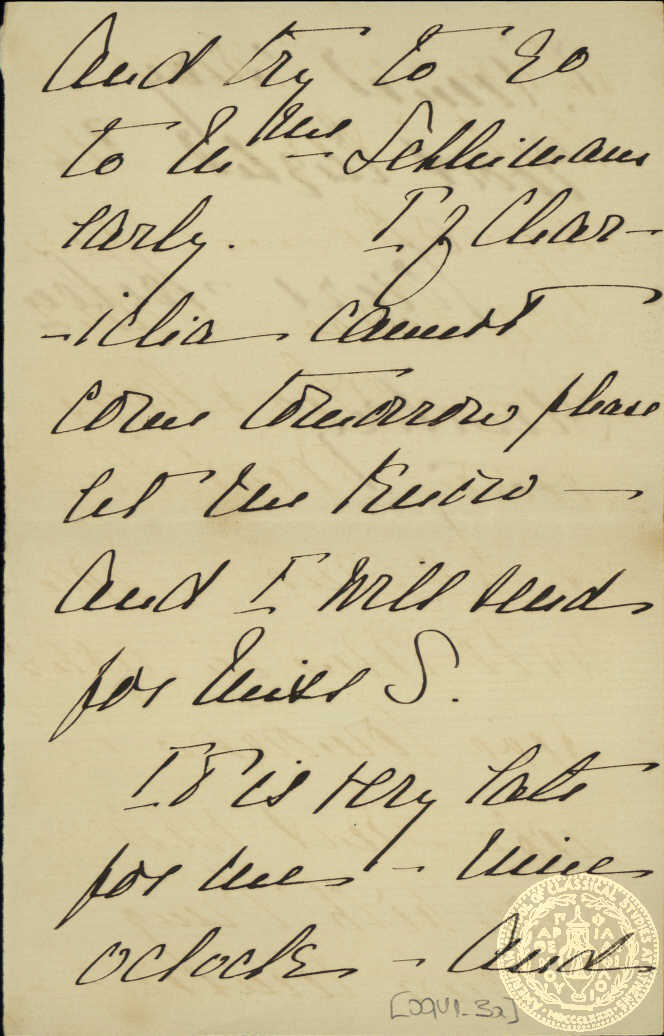 And try to go
to Mme - Schliemans
early. If Char-
-iclia cannot
come tomorrow please
let me know -
And I will send
for Miss S.
It is very late
for me - nine
oclock - And